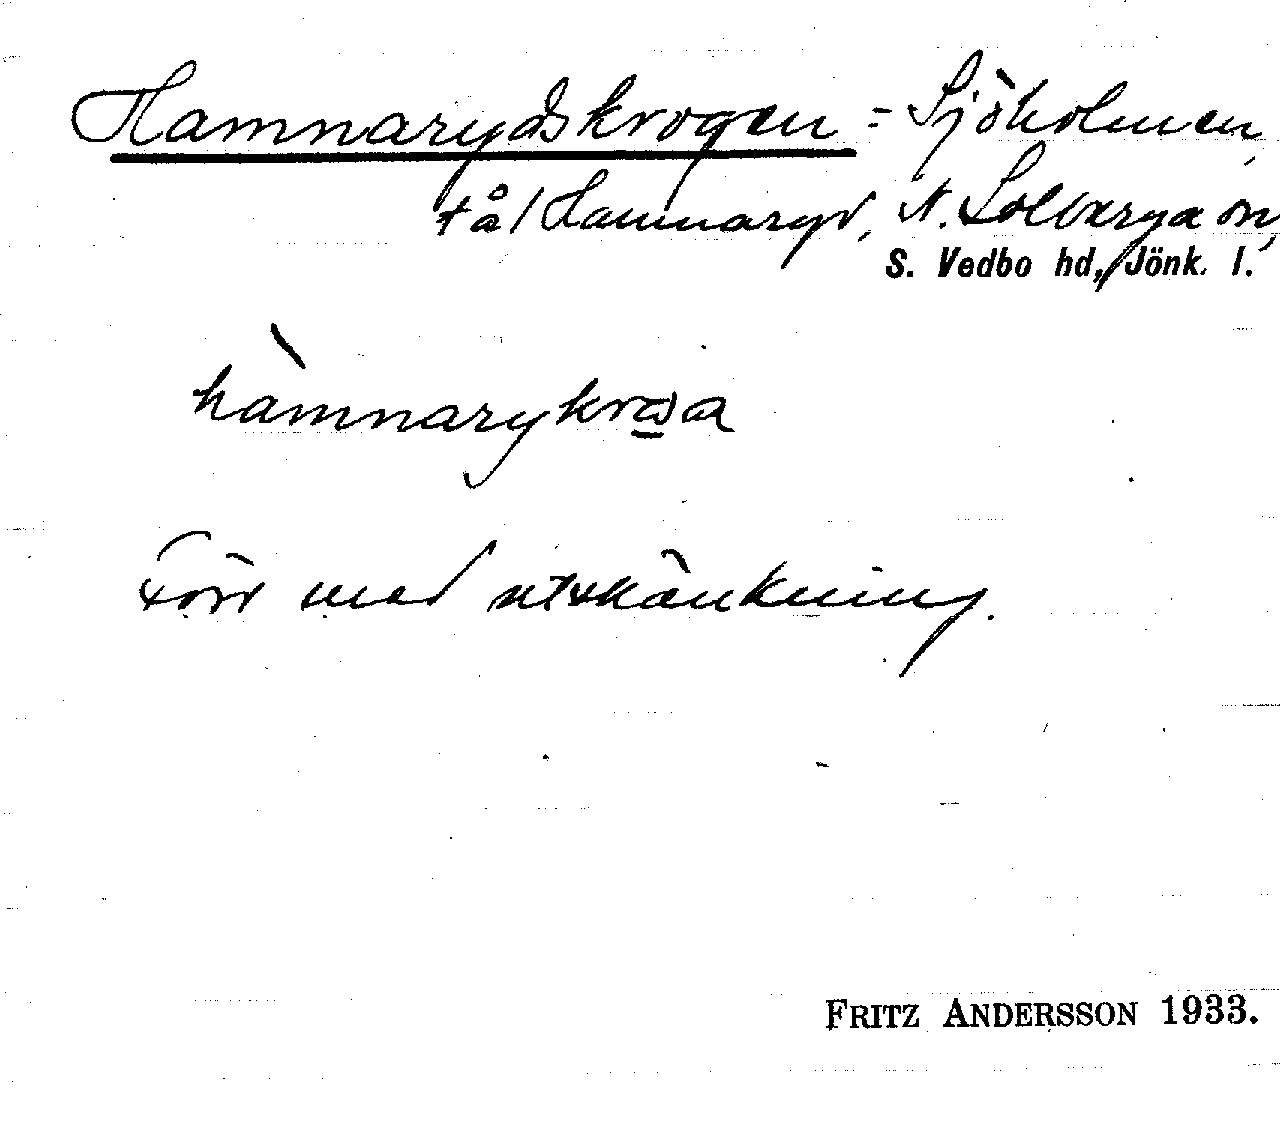 Hamnarydskrogen = Sjöholmen,
t å / Hamnaryd, N. Solberga sn,
S. Vedbo hd, Jönk. l.
hàmnarykrωa
Förr med utskänkning.
FRITZ ANDERSSON 1933.